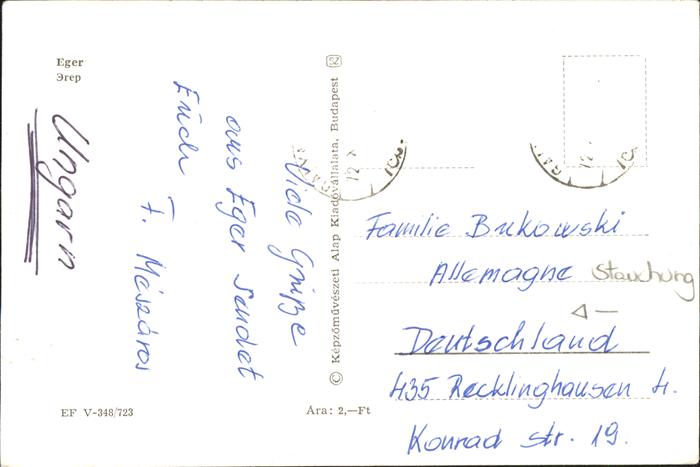 Eger
Эгер
Ungarn
Viele Grüße
aus Eger sendet
Euch
F. Mészáros
© Képzőművészeti Alap Kiadóvállalata, Budapest
Familie Bukowski
Allemagne Stauchung
Deutschland
435 Recklinghausen 4.
Konrad str. 19.
EF V-348/723
Ára: 2,—Ft